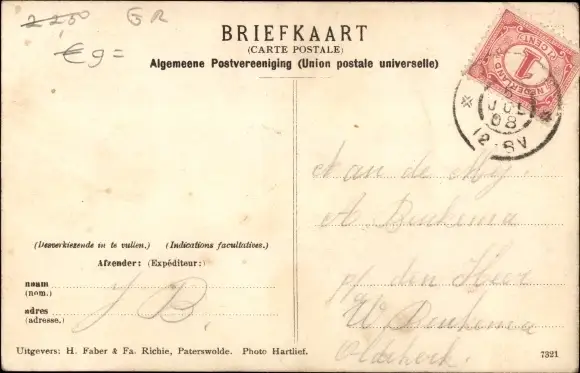 2250 GR
€ 9=
BRIEFKAART
(CARTE POSTALE)
Algemeene Postvereeniging (Union postale universelle)
1
CENT
NEDERLAND
JUL
08
12-8V
Aan de Mej.
A Beukema
p/ den Heer
W Beukema
Oldekerk.
(Desverkiezende in te vullen.) (Indications facultatives.)
Afzender: (Expéditeur:)
naam
(nom.)
J B.
adres
(adresse.)
Uitgevers: H. Faber & Fa. Richie, Paterswolde. Photo Hartlief.
7321